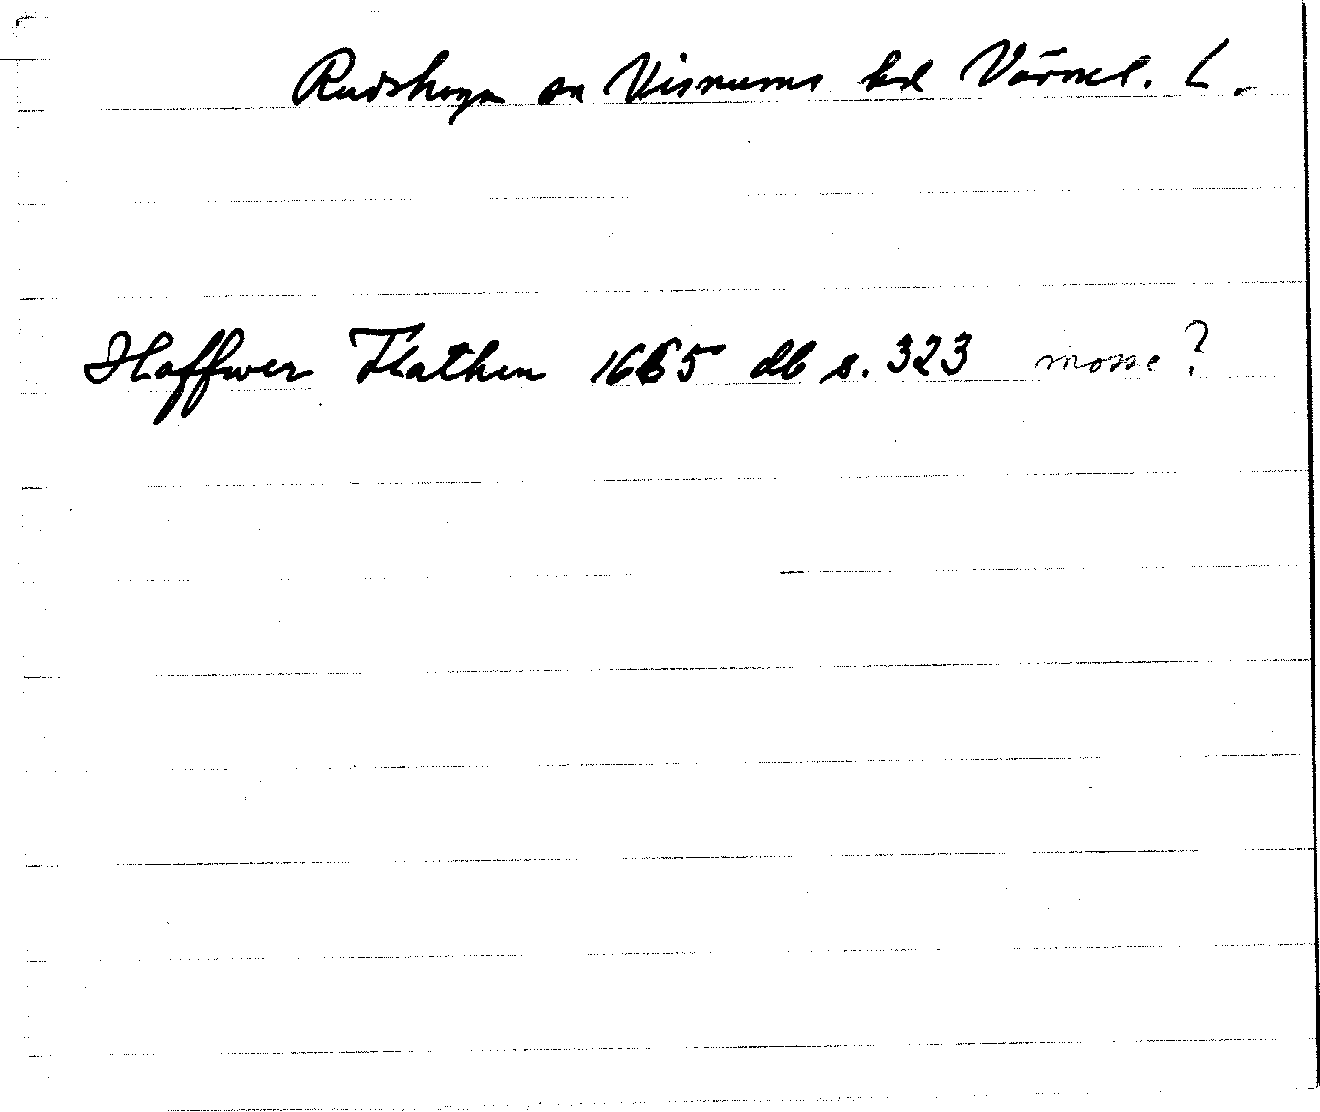 Rudskoga sn Visnums hd Värml. L.
Haffwer Flathen 1665 db s. 323 mosse?